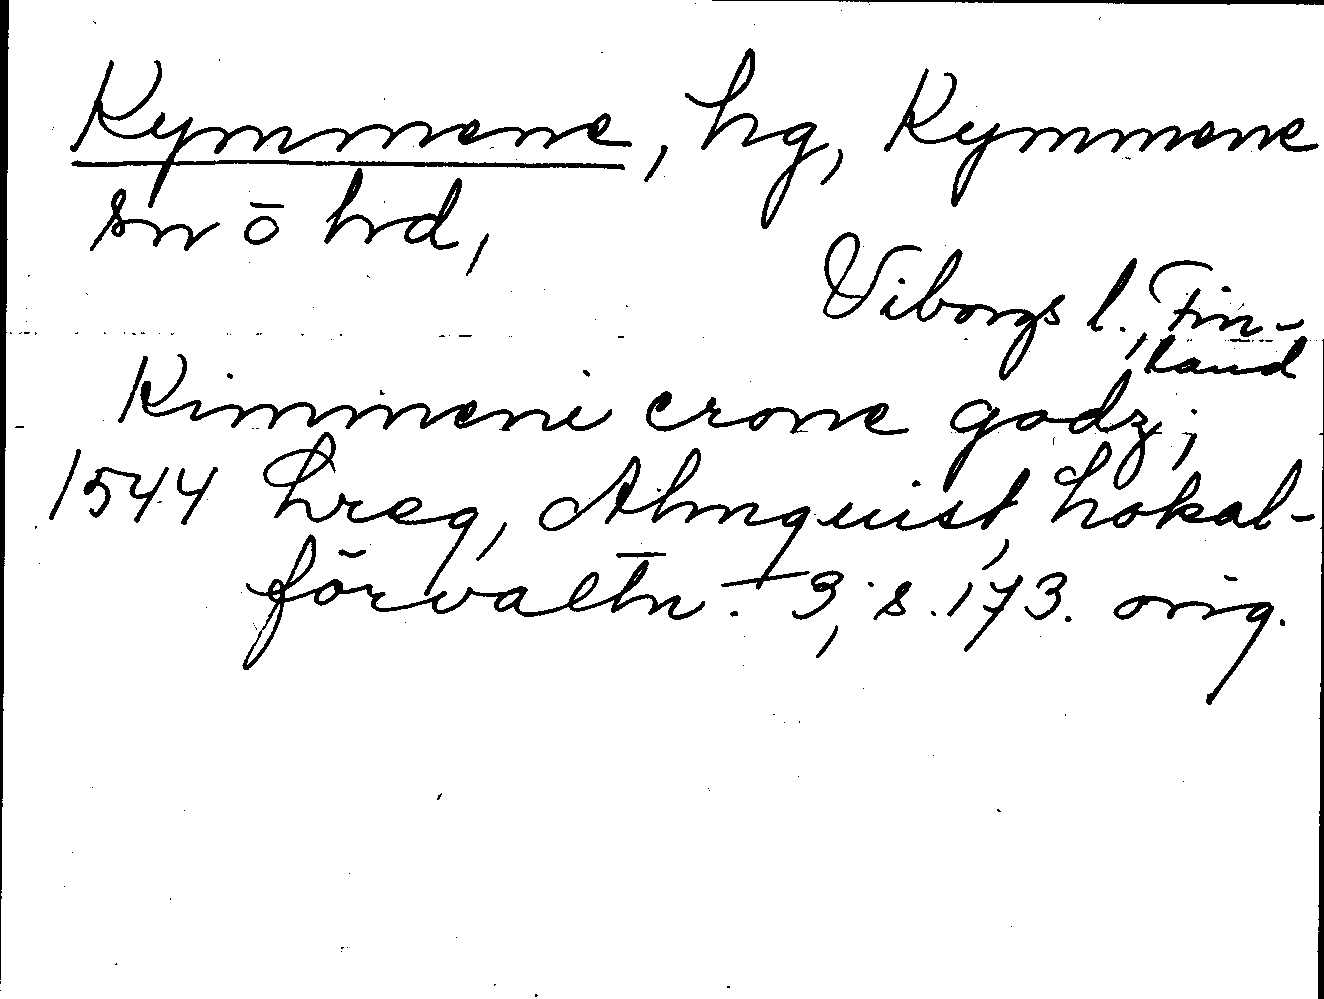 Kymmene, hg, Kymmene
sn ō hd,
Viborgs l., Fin-
land
Kimmeni crone godz;
1544 Lreg, Almquist, Lokal-
förvaltn. 3, s. 173. orig.